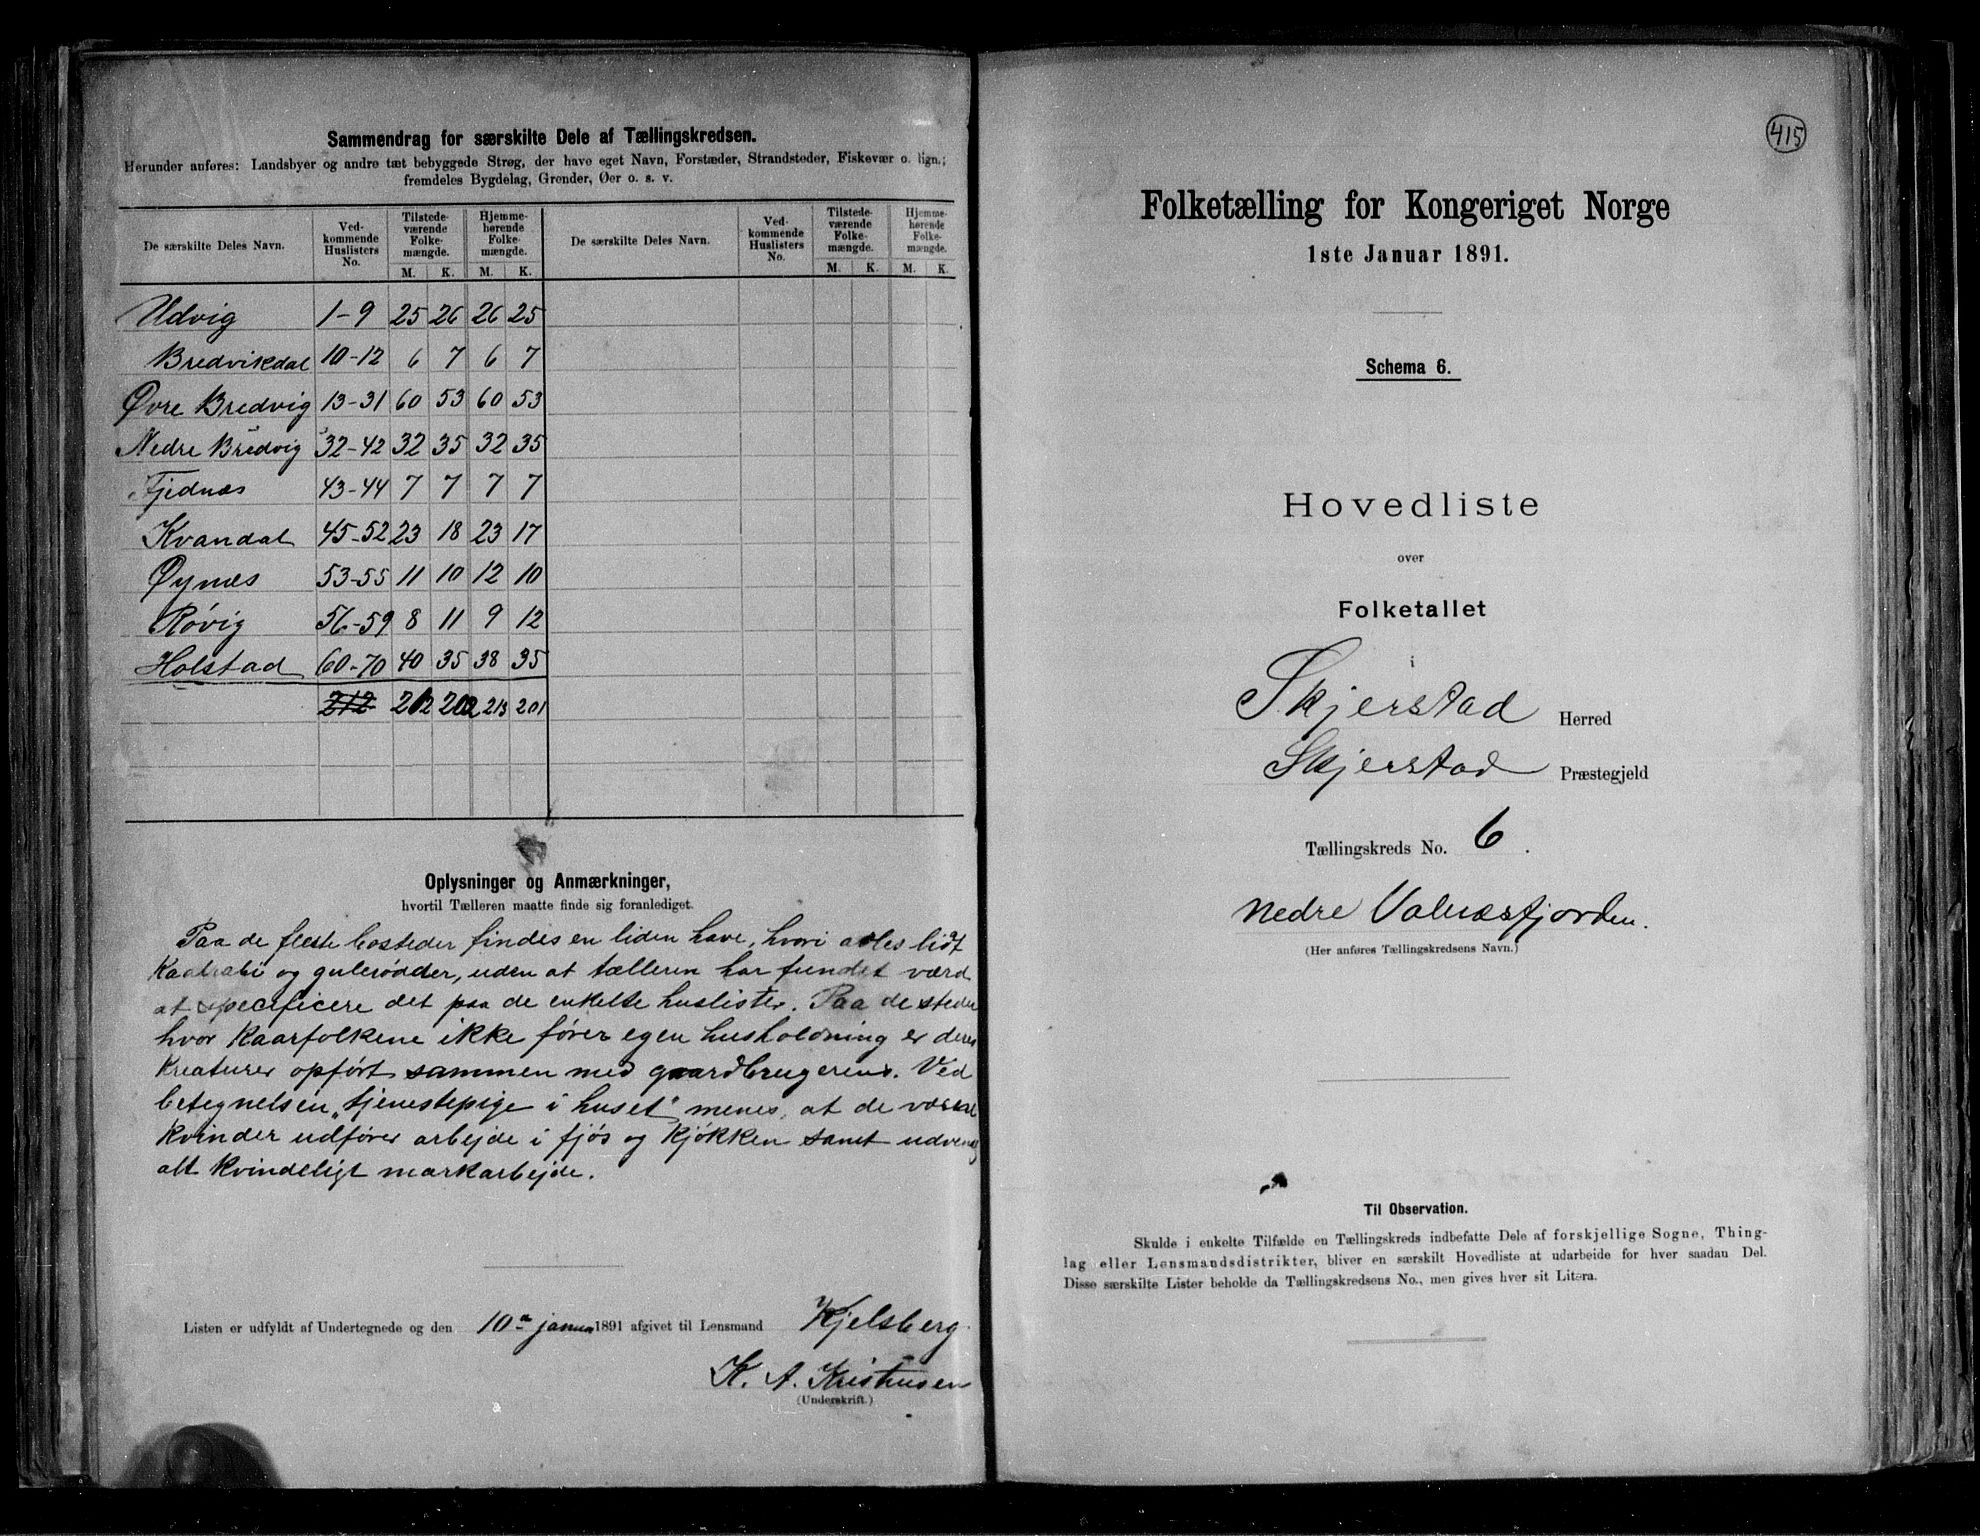 Sammendrag for særskilte Dele af Tællingskredsen.
Herunder anføres: Landsbyer og andre tæt bebyggede Strøg, der have eget Navn, Forstæder, Strandsteder, Fiskevær o. lign.;
fremdeles Bygdelag, Grender, Øer o. s. v.
De særskilte Deles Navn. Ved-kommende Huslisters No. Tilstede-værende Folke-mængde. Hjemme-hørende Folke-mængde. De særskilte Deles Navn. Ved-kommende Huslisters No. Tilstede-værende Folke-mængde. Hjemme-hørende Folke-mængde.
M. K. M. K. M. K. M. K.
Udvig 1-9 25 26 26 25
Bredvikdal 10-12 6 7 6 7
Øvre Bredvig 13-31 60 53 60 53
Nedre Bredvig 32-42 32 35 32 35
Fjednæs 43-44 7 7 7 7
Kvandal 45-52 23 18 23 17
Øynæs 53-55 11 10 12 10
Røvig 56-59 8 11 9 12
Holstad 60-70 40 35 38 35
212 212 202 213 201
Oplysninger og Anmærkninger,
hvortil Tælleren maatte finde sig foranlediget.
Paa de fleste bosteder findes en liden have, hvori avles lidt
Kaalrabi og gulerødder, uden at tælleren har fundet værd
at specificere det paa de enkelte huslister. Paa de steder
hvor Kaarfolkene ikke fører egen husholdning er deres
Kreaturer opført sammen med gaardbrugerens. Ved
betegnelsen "tjenestepige i huset" menes, at de voksne
kvinder udfører arbejde i fjøs og kjøkken samt udvendig
alt kvindeligt markarbejde.
Listen er udfyldt af Undertegnede og den 10de janua 1891 afgivet til Lensmand Kjelsberg.
K. A. Kristensen
(Underskrift.)
415
Folketælling for Kongeriget Norge
1ste Januar 1891.
Schema 6.
Hovedliste
over
Folketallet
i
Skjerstad Herred
Skjerstad Præstegjeld
Tællingskreds No. 6.
Nedre Valnæsfjorden.
(Her anføres Tællingskredsens Navn.)
Til Observation.
Skulde i enkelte Tilfælde en Tællingskreds indbefatte Dele af forskjellige Sogne, Thing-
lag eller Lensmandsdistrikter, bliver en særskilt Hovedliste at udarbeide for hver saadan Del.
Disse særskilte Lister beholde da Tællingskredsens No., men gives hver sit Litera.